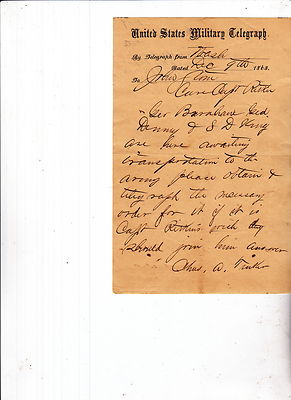 United States Military Telegraph.
By Telegraph from Wash
Dated, Dec 9th 1863.
To John Clem
Care Capt
Geo
Denny & S D King
are here awaiting
transportation to the
army please obtain &
telegraph the necessary
order for it if it is
Capt wish they
should join him answer
Chas. A. Tinker